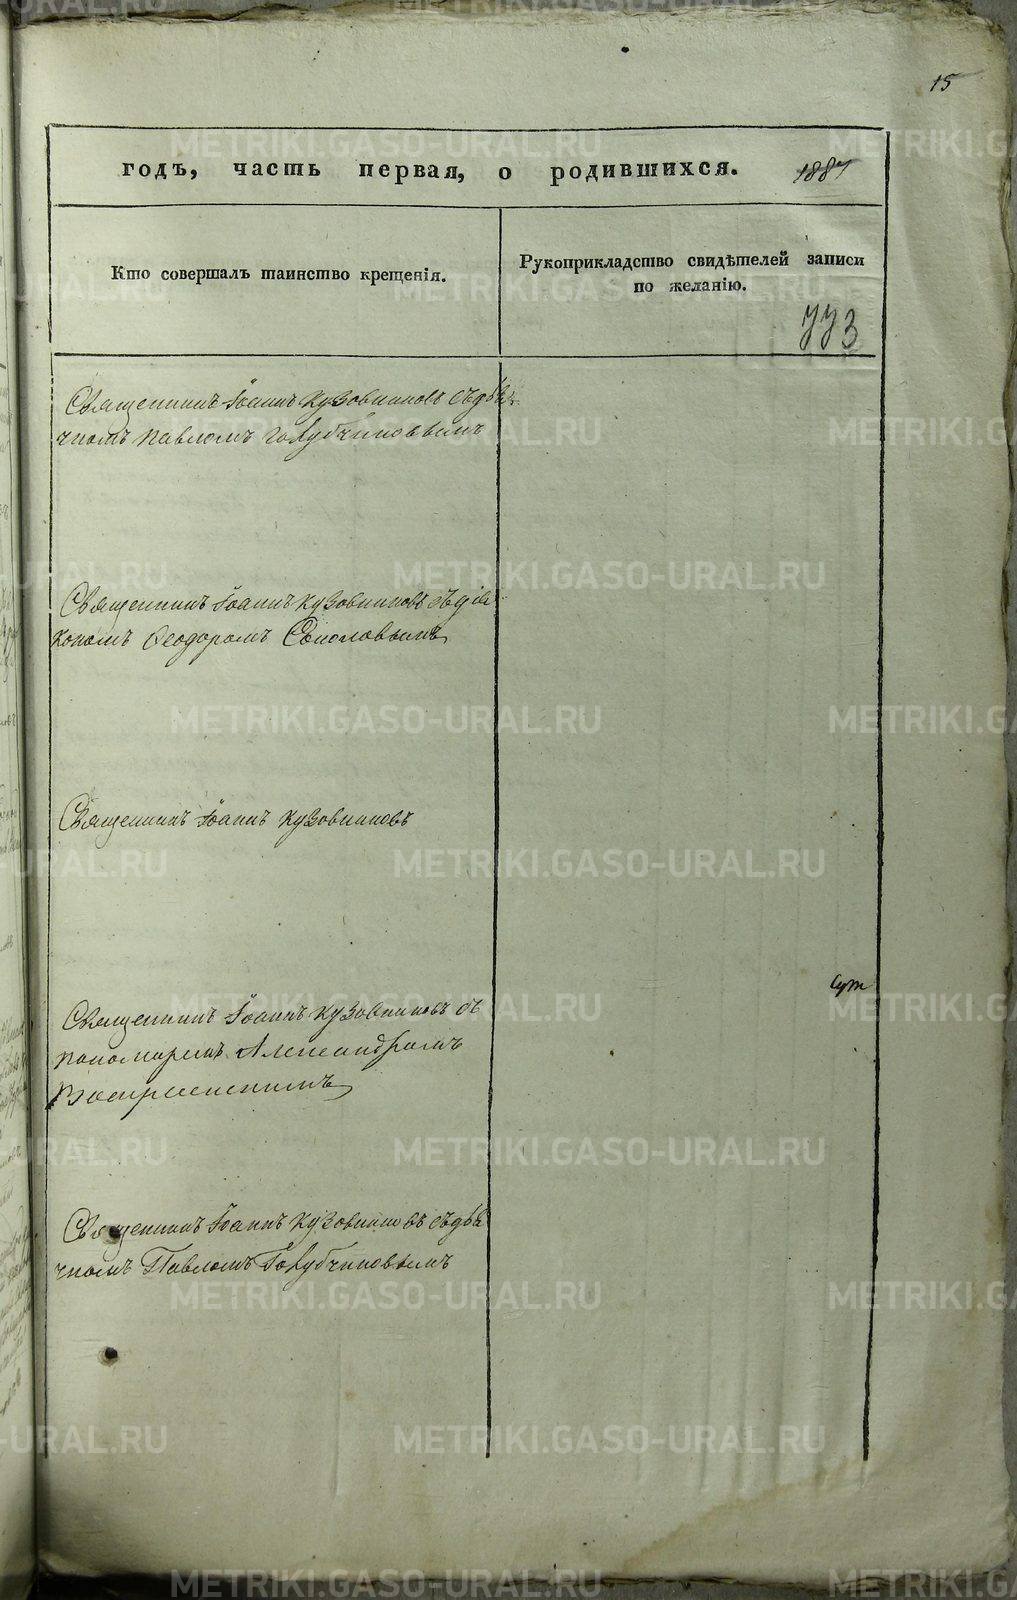 15
годъ, часть первая, о родившихся. 1887
Кто совершалъ таинство крещенія.
Рукоприкладство свидѣтелей записи
по желанію.
773
Священникъ Іоаннъ Кузовниковъ съ дья
чкомъ Павломъ Голубчиковымъ
Священникъ Іоаннъ Кузовниковъ съ діа
кономъ Ѳеодоромъ Соколовымъ
Священникъ Іоаннъ Кузовниковъ
Священникъ Іоаннъ Кузовниковъ съ
пономаремъ Александромъ
Воскресенскимъ
Священникъ Іоаннъ Кузовниковъ съ дья
чкомъ Павломъ Голубчиковымъ
METRIKI.GASO-URAL.RU